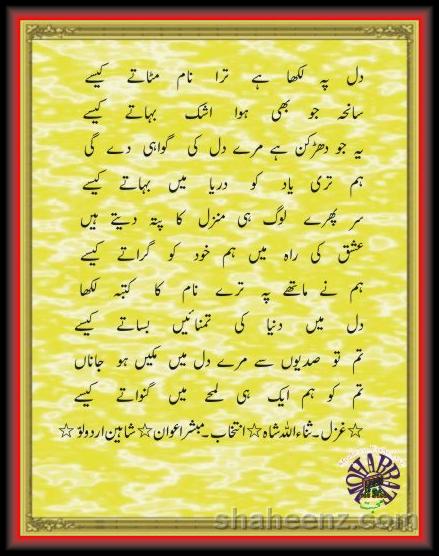 دل پہ لکھا ہے ترا نام مٹاتے کیسے
سانحہ جو بھی ہوا اشک بہاتے کیسے
یہ جو دھڑکن ہے مرے دل کی گواہی دے گی
ہم تری یاد کو دریا میں بہاتے کیسے
سر پھرے لوگ ہی منزل کا پتہ دیتے ہیں
عشق کی راہ میں ہم خود کو گراتے کیسے
ہم نے ماتھے پہ ترے نام کا کتبہ لکھا
دل میں دنیا کی تمنائیں بساتے کیسے
تم تو صدیوں سے مرے دل میں مکیں ہو جاناں
تم کو ہم ایک ہی لمحے میں گنواتے کیسے
☆غزل۔ثناءاللہ شاہ☆انتخاب۔مبشراعوان☆شاہین اردولوَ☆
shaheenz.com